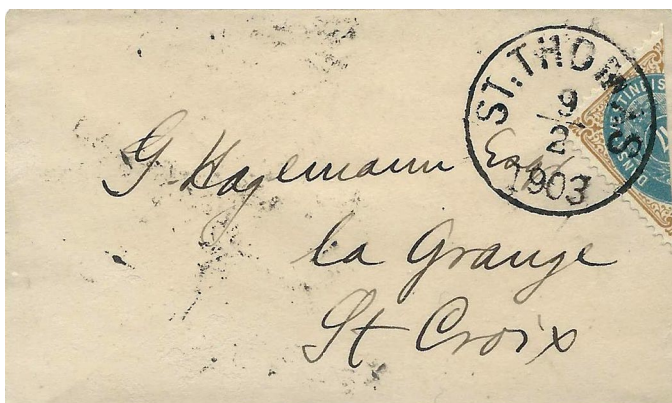 ST. THOMAS
9/2
1903
G Hagemann Esq
la Grange
St Croix